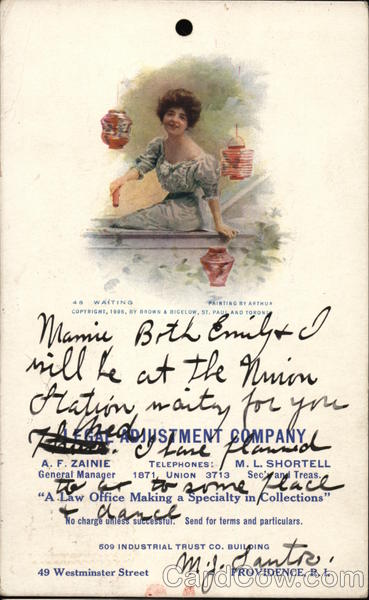 48 WAITING PAINTING BY ARTHUR
COPYRIGHT, 1906, BY BROWN & BIGELOW, ST. PAUL AND TORONTO
Mamie Both Emily & I
will be at the Union
Station waiting for you
LEGAL ADJUSTMENT COMPANY
I have planned
A. F. ZAINIE TELEPHONES: M. L. SHORTELL
General Manager 1871, UNION 3713 Sec'y and Treas.
to go to some place
"A Law Office Making a Specialty in Collections"
& dance
No charge unless successful. Send for terms and particulars.
509 INDUSTRIAL TRUST CO. BUILDING
M. J.
49 Westminster Street PROVIDENCE, R. I.
CardCow.com